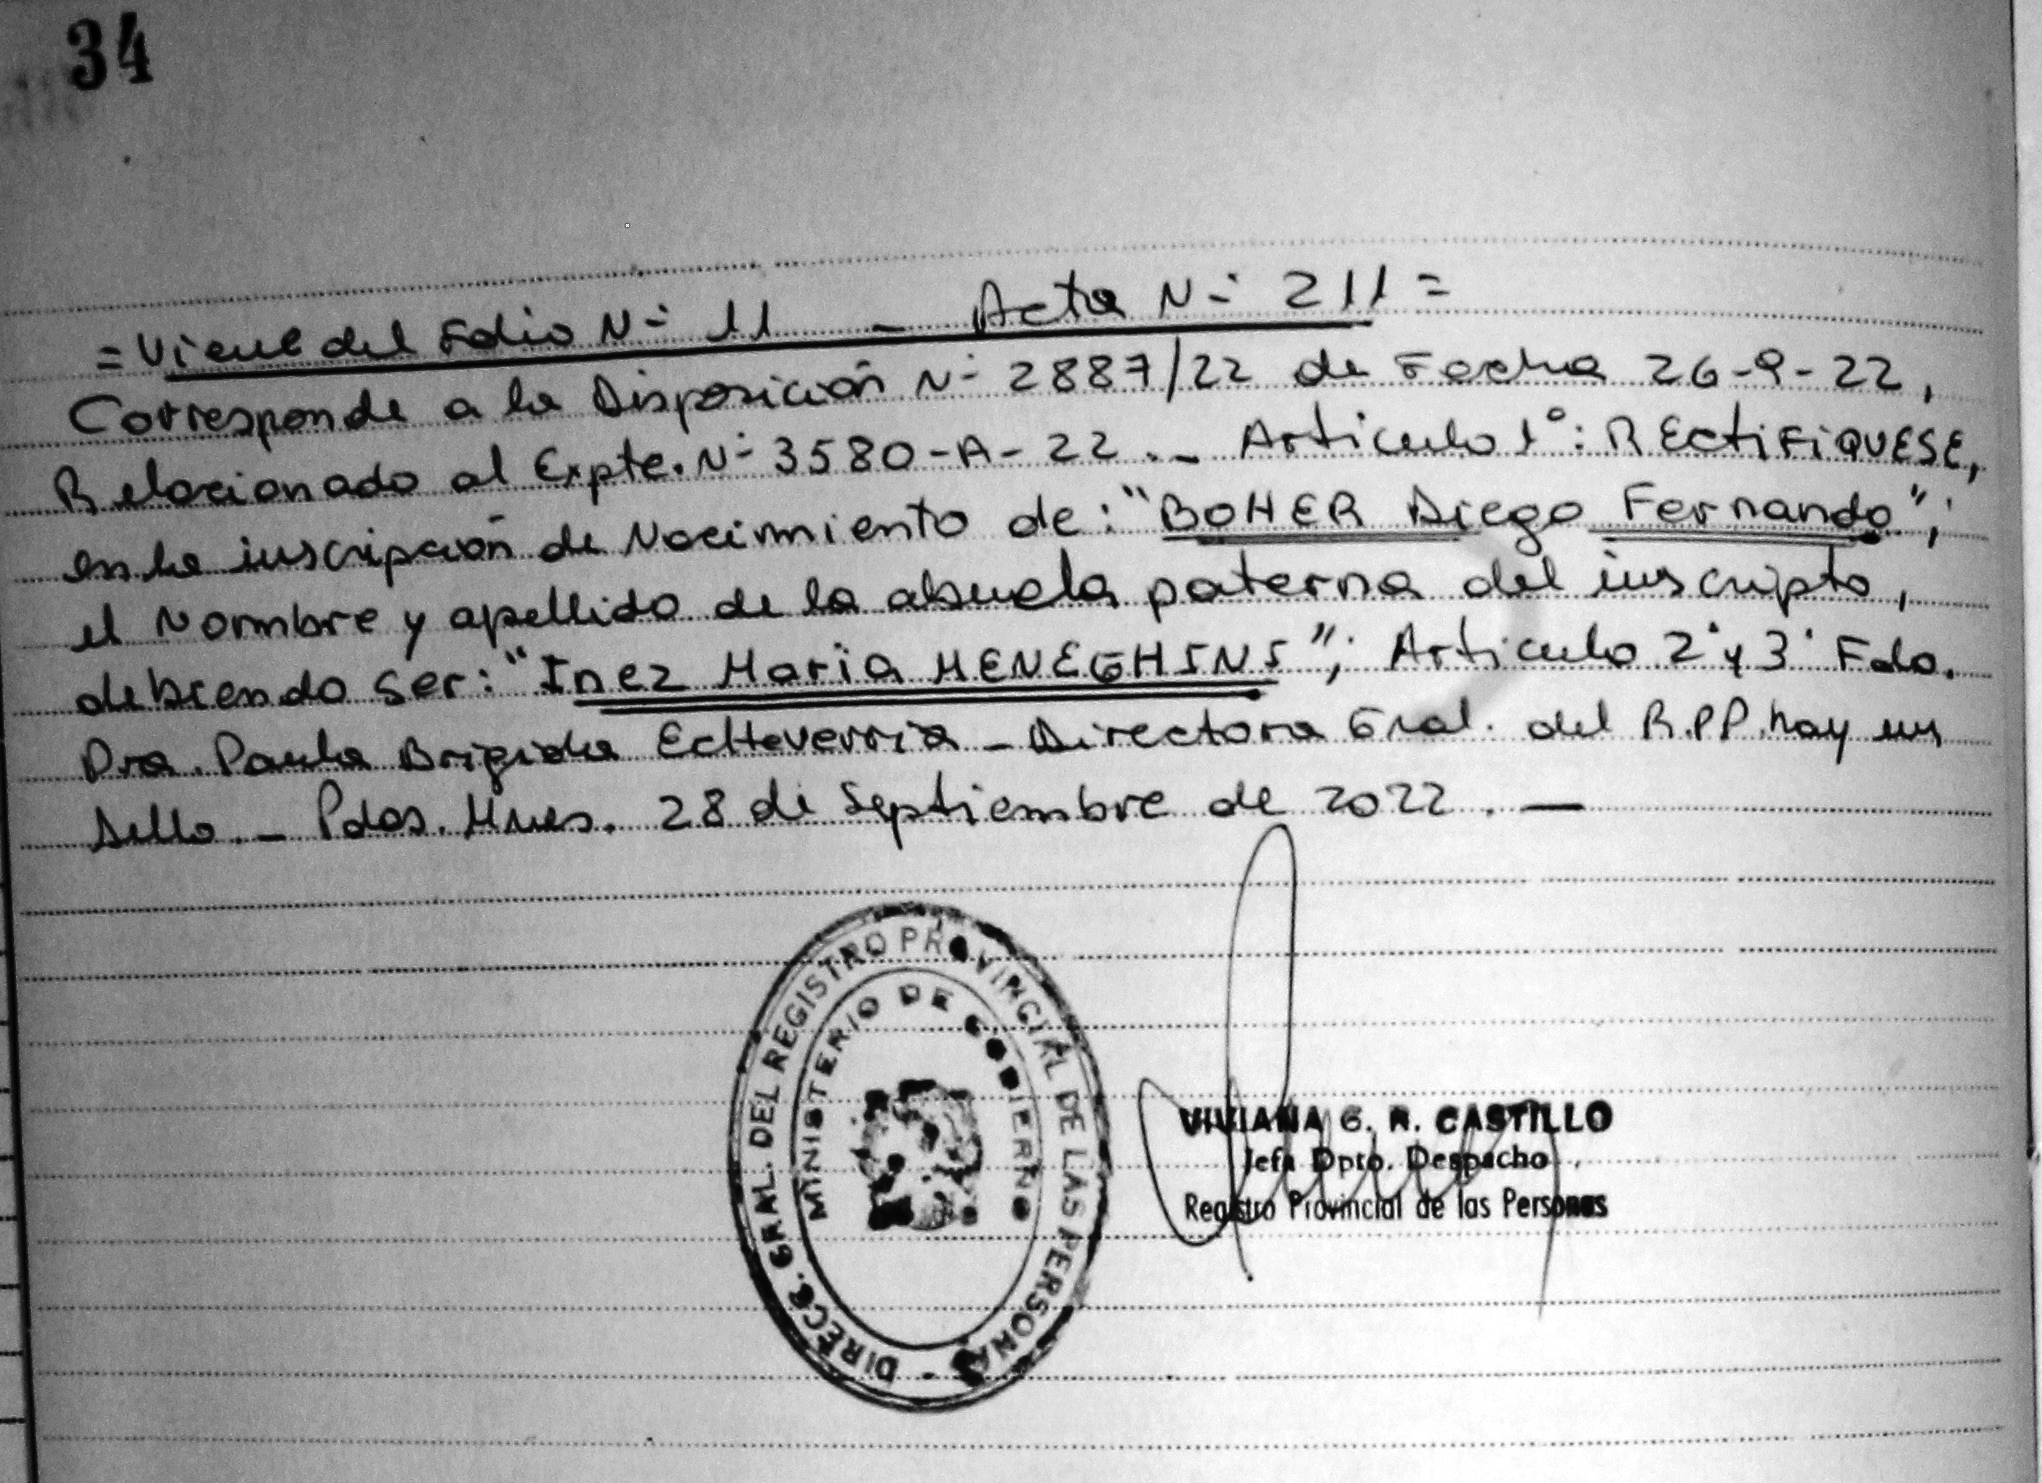 34
= Viene del Folio N- 11 - Acta N- 211 =
Corresponde a la Disposición N- 2887/22 de Fecha 26-9-22,
Relacionado al Expte. N- 3580-A-22.- Articulo 1°: RECtiFiQUESE,
en la inscripción de Nacimiento de: "BOHER Diego Fernando";
el Nombre y apellido de la abuela paterna del inscripto,
debiendo ser: "Inez Maria MENEGHINI"; Articulo 2° y 3° Fdo.
Dra. Paula Brigida Echeverria - Directora Gral. del R.P.P. hay un
Sello. - Pdas. Mnes. 28 de Septiembre de 2022. —
DIRECC. GRAL. DEL REGISTRO PROVINCIAL DE LAS PERSONAS -
MINISTERIO DE GOBIERNO
VIVIANA G. R. CASTILLO
Jefa Dpto. Despacho
Registro Provincial de las Personas